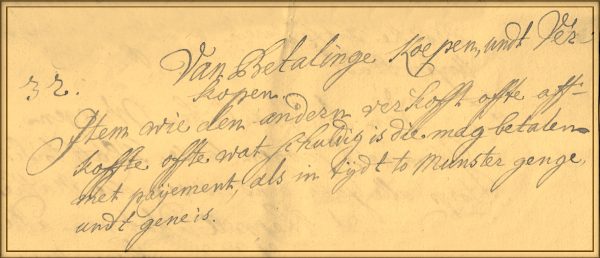 Van Betalinge Koepen, undt Ver-
32. kopen.
Item wie den andern verkofft offte aff-
koffte offte wat schuldig is die mag betalen
met payement, als in tijdt to Munster genge,
undt geneis.